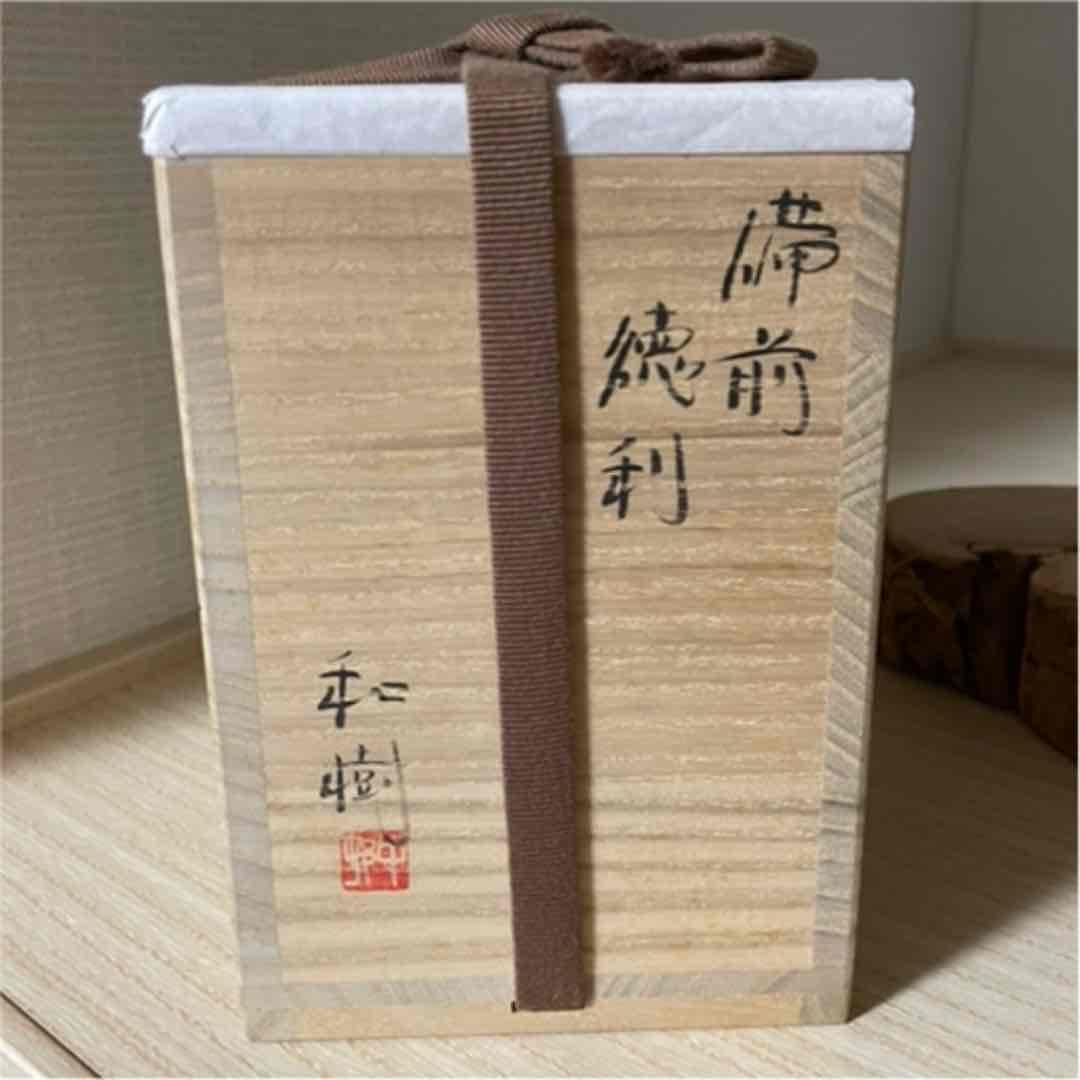 備前
徳利
和樹